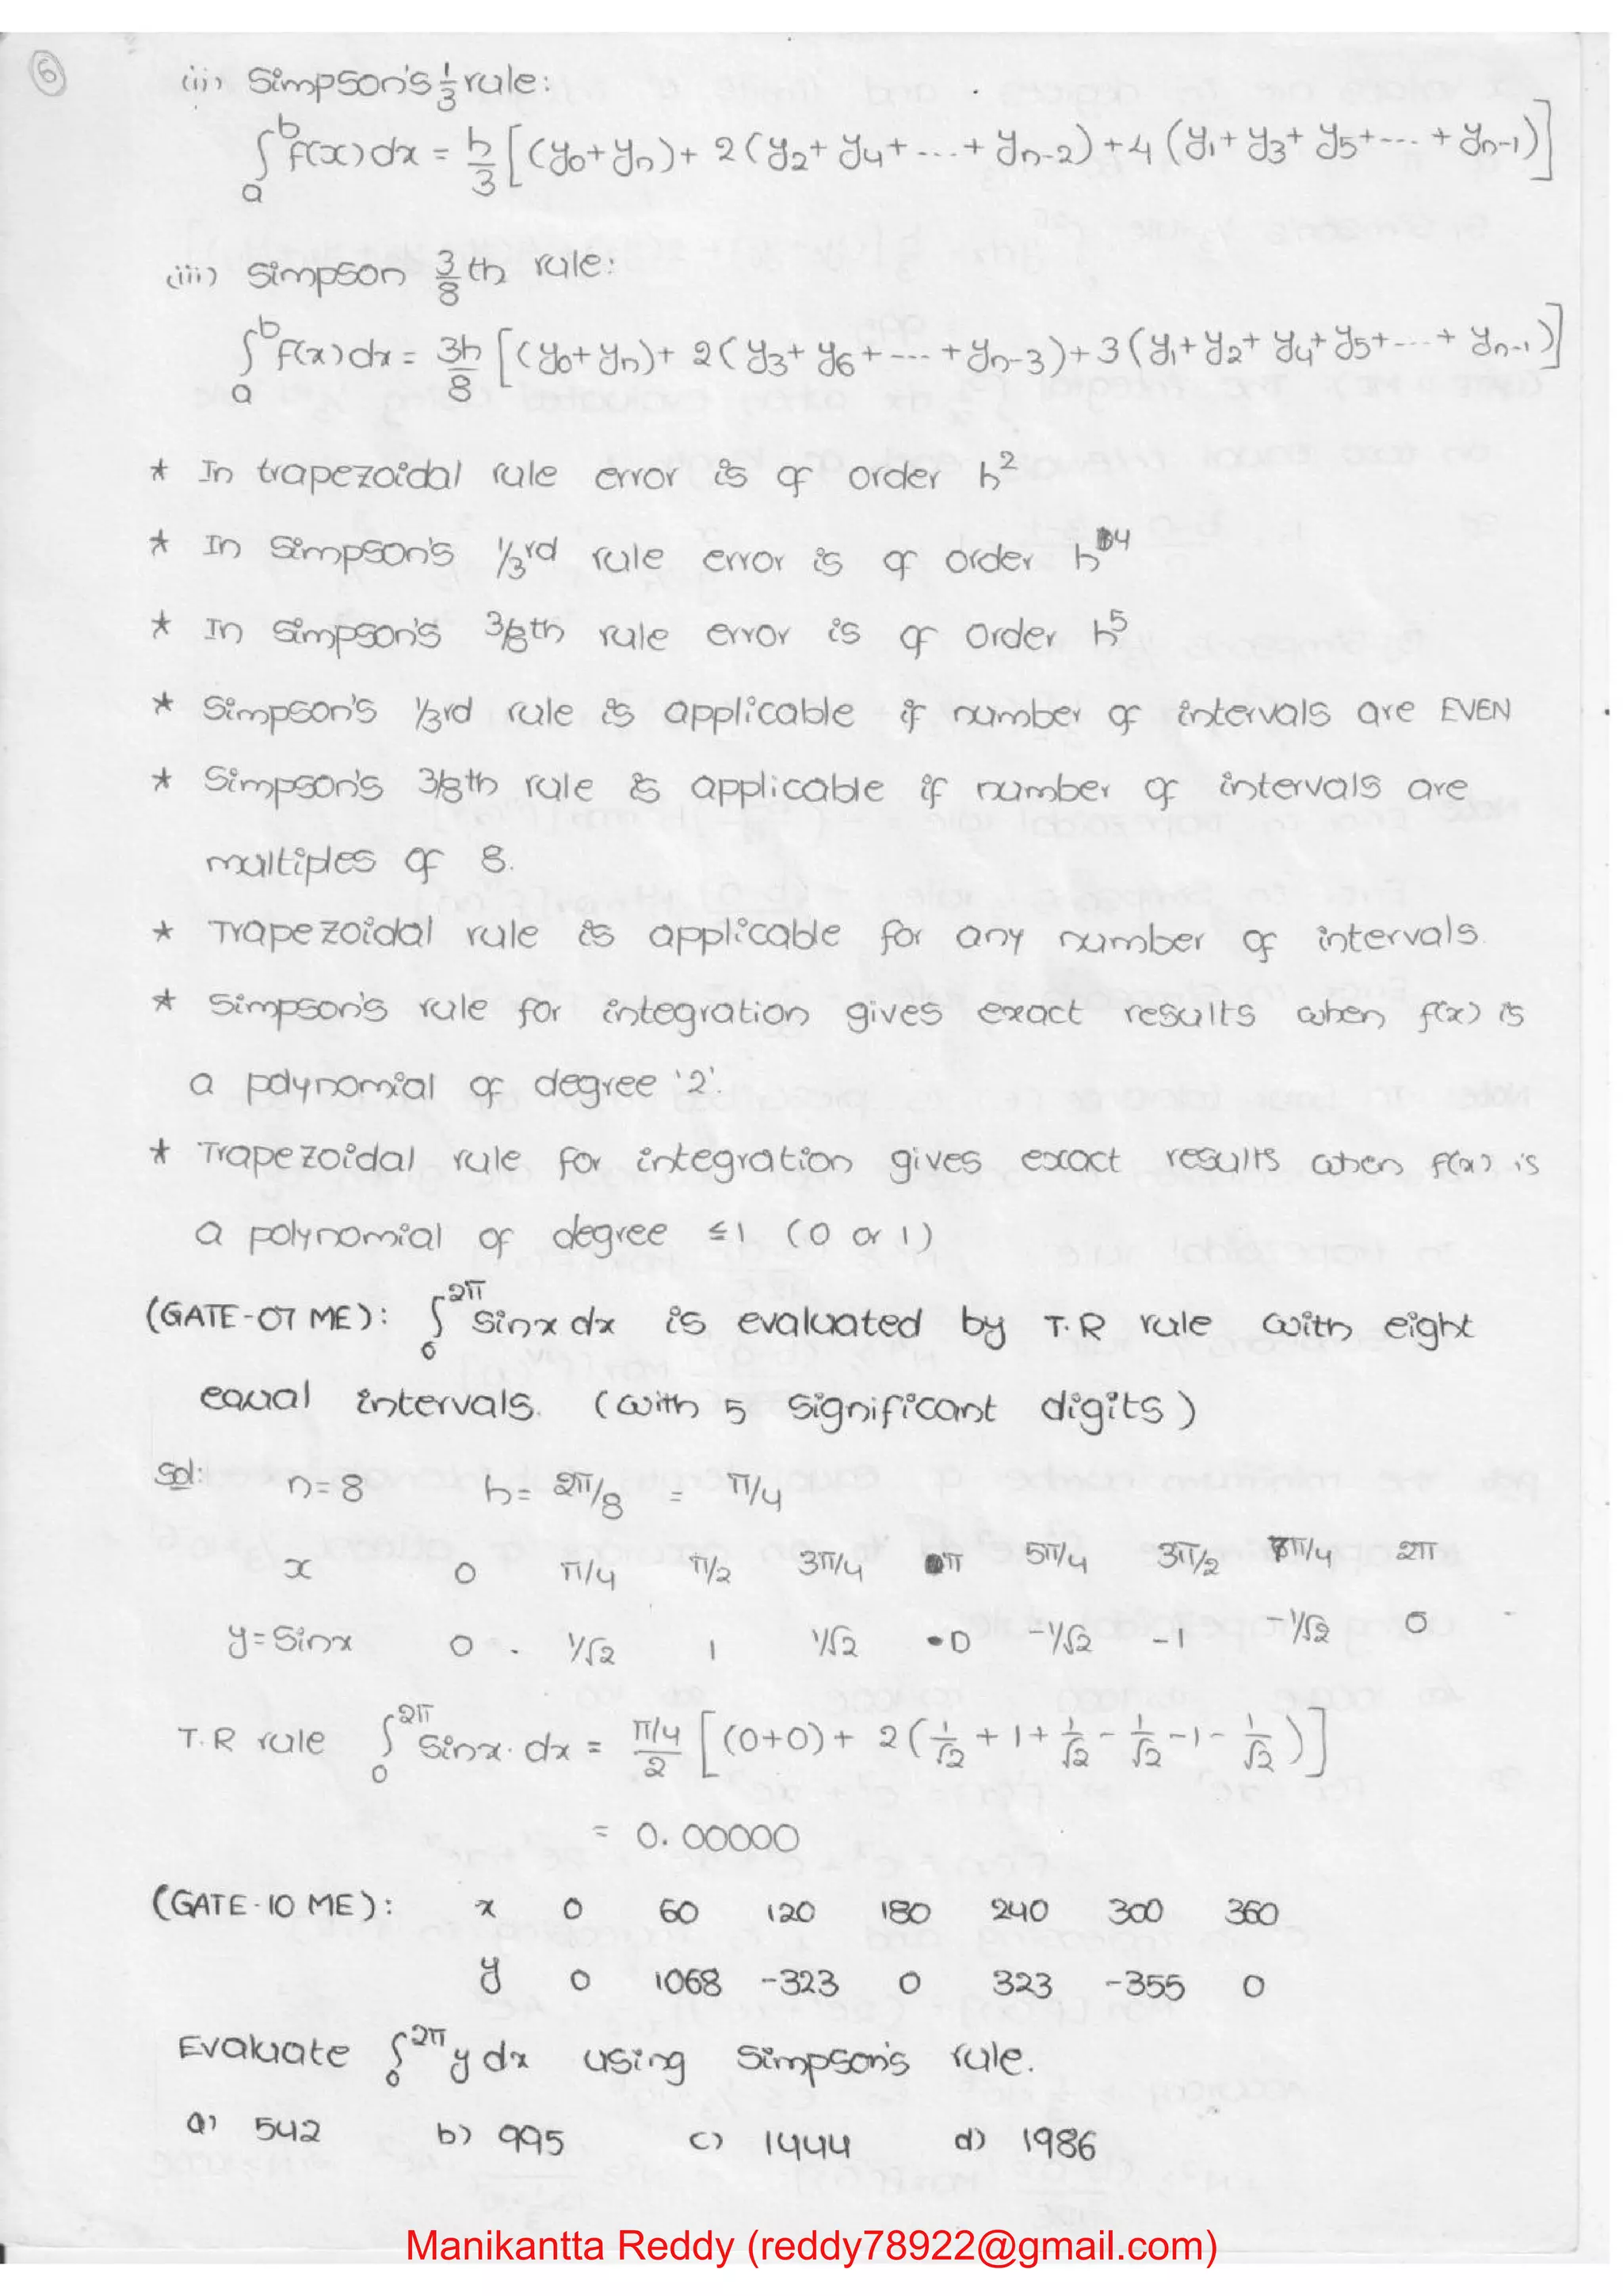 6
(ii) Simpson's 1/3 rule:
∫ₐᵇ f(x) dx = h/3 [(y₀+yₙ)+ 2(y₂+ y₄+ ...+ yₙ₋₂) +4 (y₁+ y₃+ y₅+--- + yₙ₋₁)]
(iii) Simpson 3/8 th rule:
∫ₐᵇ f(x) dx = 3h/8 [(y₀+ yₙ)+ 2(y₃+ y₆ + --- +yₙ₋₃)+ 3(y₁+ y₂+ y₄+ y₅+---+ yₙ₋₁)]
* In trapezoidal rule error is of order h²
* In Simpson's 1/3rd rule error is of order h⁴
* In Simpson's 3/8th rule error is of order h⁵
* Simpson's 1/3rd rule is applicable if number of intervals are EVEN
* Simpson's 3/8th rule is applicable if number of intervals are
multiples of 8.
* Trapezoidal rule is applicable for any number of intervals.
* Simpson's rule for integration gives exact results when f(x) is
a polynomial of degree '2'.
* Trapezoidal rule for integration gives exact results when f(x) is
a polynomial of degree ≤1 (0 or 1)
(GATE-07 ME): ∫₀²π sinx dx is evaluated by T.R rule with eight
equal intervals. (with 5 significant digits)
Sol: n=8 h= 2π/8 = π/4
x 0 π/4 π/2 3π/4 π 5π/4 3π/2 7π/4 2π
y=Sinx 0 1/√2 1 1/√2 0 -1/√2 -1 -1/√2 0
T.R rule ∫₀²π Sinx. dx = π/4/2 [(0+0)+ 2(1/√2 +1+ 1/√2 - 1/√2 -1- 1/√2)]
= 0.00000
(GATE-10 ME): x 0 60 120 180 240 300 360
y 0 1068 -323 0 323 -355 0
Evaluate ∫₀²π y dx using Simpson's rule.
a) 542 b) 995 c) 1444 d) 1986
Manikantta Reddy (reddy78922@gmail.com)